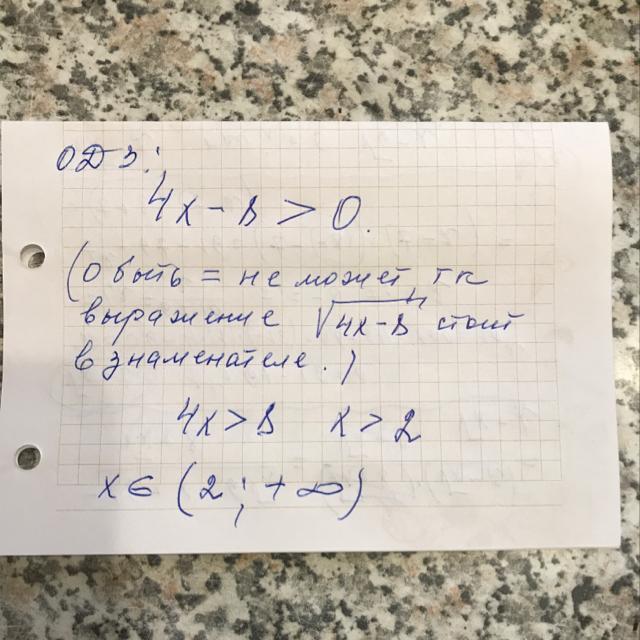 ОДЗ:
4x-8>0.
(0 быть = не может, тк
выражение √4x-8 стоит
в знаменателе.)
4x>8 x>2
x∈(2;+∞)